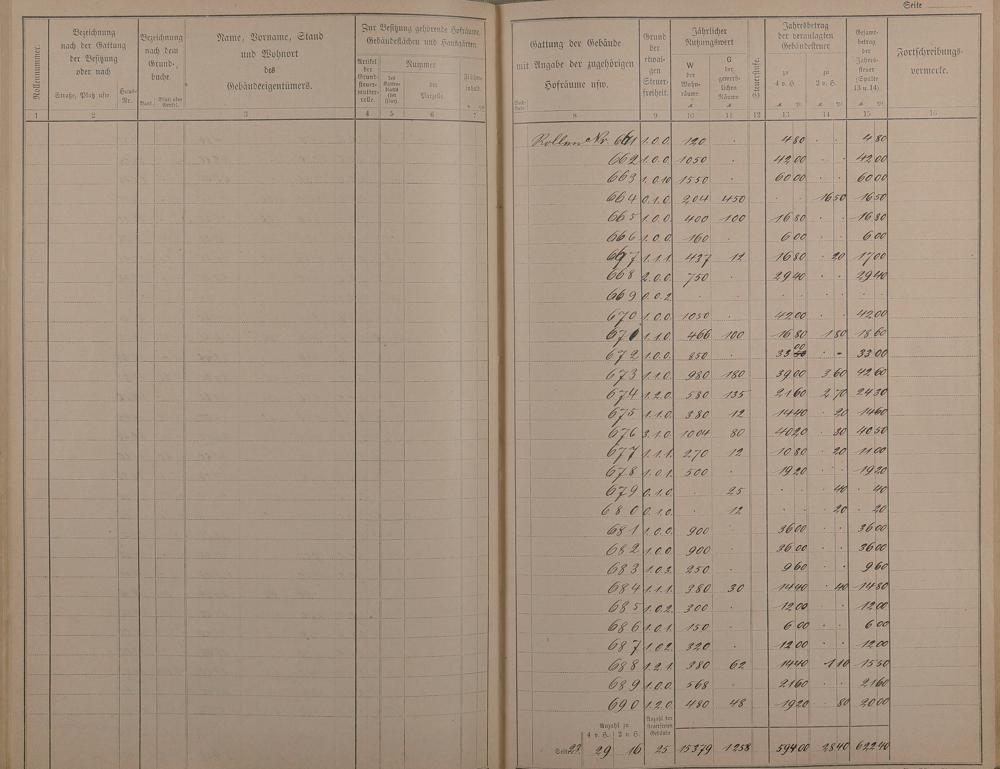 Seite
Rollennummer.
Bezeichnung
nach der Gattung
der Besitzung
oder nach
Straße, Platz usw.
Haus-
Nr.
Bezeichnung
nach dem
Grund-
buche.
Band.
Blatt oder
Artikel.
Name, Vorname, Stand
und Wohnort
des
Gebäudeeigentümers.
Zur Besitzung gehörende Hofräume,
Gebäudeflächen und Hausgärten.
Artikel
der
Grund-
steuer-
mutter-
rolle.
Nummer
des
Karten-
blatts
(der
Flur).
der
Parzelle.
Flächen-
inhalt.
Gattung der Gebäude
mit Angabe der zugehörigen
Hofräume usw.
Grund
der
etwai-
gen
Steuer-
freiheit.
Jährlicher
Nutzungswert
W
der
Wohn-
räume
G
der
gewerb-
lichen
Räume
Steuerstufe.
Jahresbetrag
der veranlagten
Gebäudesteuer
zu
4 v. H.
zu
2 v. H.
Gesamt-
betrag
der
Jahres-
steuer
(Spalte
13 u. 14).
Fortschreibungs-
vermerke.
1 2 3 4 5 6 7 8 9 10 11 12 13 14 15 16
Rollen Nr. 661 1.0.0. 120 . 4 80 . . 4 80
662 1.0.0 1050 . 42 00 . . 42 00
663 1.0.10 1550 . 60 00 . . 60 00
664 0.1.0 204 450 . . 16 50 16 50
665 1.0.0. 400 100 16 80 . . 16 80
666 1.0.0. 160 . 6 00 . . 6 00
667 1.1.1. 437 12 16 80 . 20 17 00
668 2.0.0. 750 . 29 40 . . 29 40
669 0.0.2. . . . . . . . .
670 1.0.0. 1050 . 42 00 . . 42 00
671 1.1.0. 466 100 16 80 1 80 18 60
672 1.0.0. 850 . 33 00 . - 33 00
673 1.1.0. 980 180 39 00 3 60 42 60
674 1.2.0. 580 135 21 60 2 70 24 30
675 1.1.0. 380 12 14 40 . 20 14 60
676 3.1.0. 1004 80 40 20 . 30 40 50
677 1.1.1. 270 12 10 80 . 20 11 00
678 1.0.1. 500 . 19 20 . . 19 20
679 0.1.0. . 25 . . . 40 . 40
680 0.1.0. . 12 . . . 20 . 20
681 1.0.0. 900 . 36 00 . . 36 00
682 1.0.0. 900 . 36 00 . . 36 00
683 1.0.3. 250 . 9 60 . . 9 60
684 1.1.1. 380 30 14 40 . 40 14 80
685 1.0.2. 300 . 12 00 . . 12 00
686 1.0.1. 150 . 6 00 . . 6 00
687 1.0.2. 320 . 12 00 . . 12 00
688 1.2.1. 380 62 14 40 1 10 15 50
689 1.0.0. 568 . 21 60 . . 21 60
690 1.2.0. 480 48 19 20 . 80 20 00
Anzahl zu
4 v. H. 2 v. H.
Anzahl der
steuerfreien
Gebäude
Seite 23. 29 16 25 15379 1258 594 00 28 40 622 40